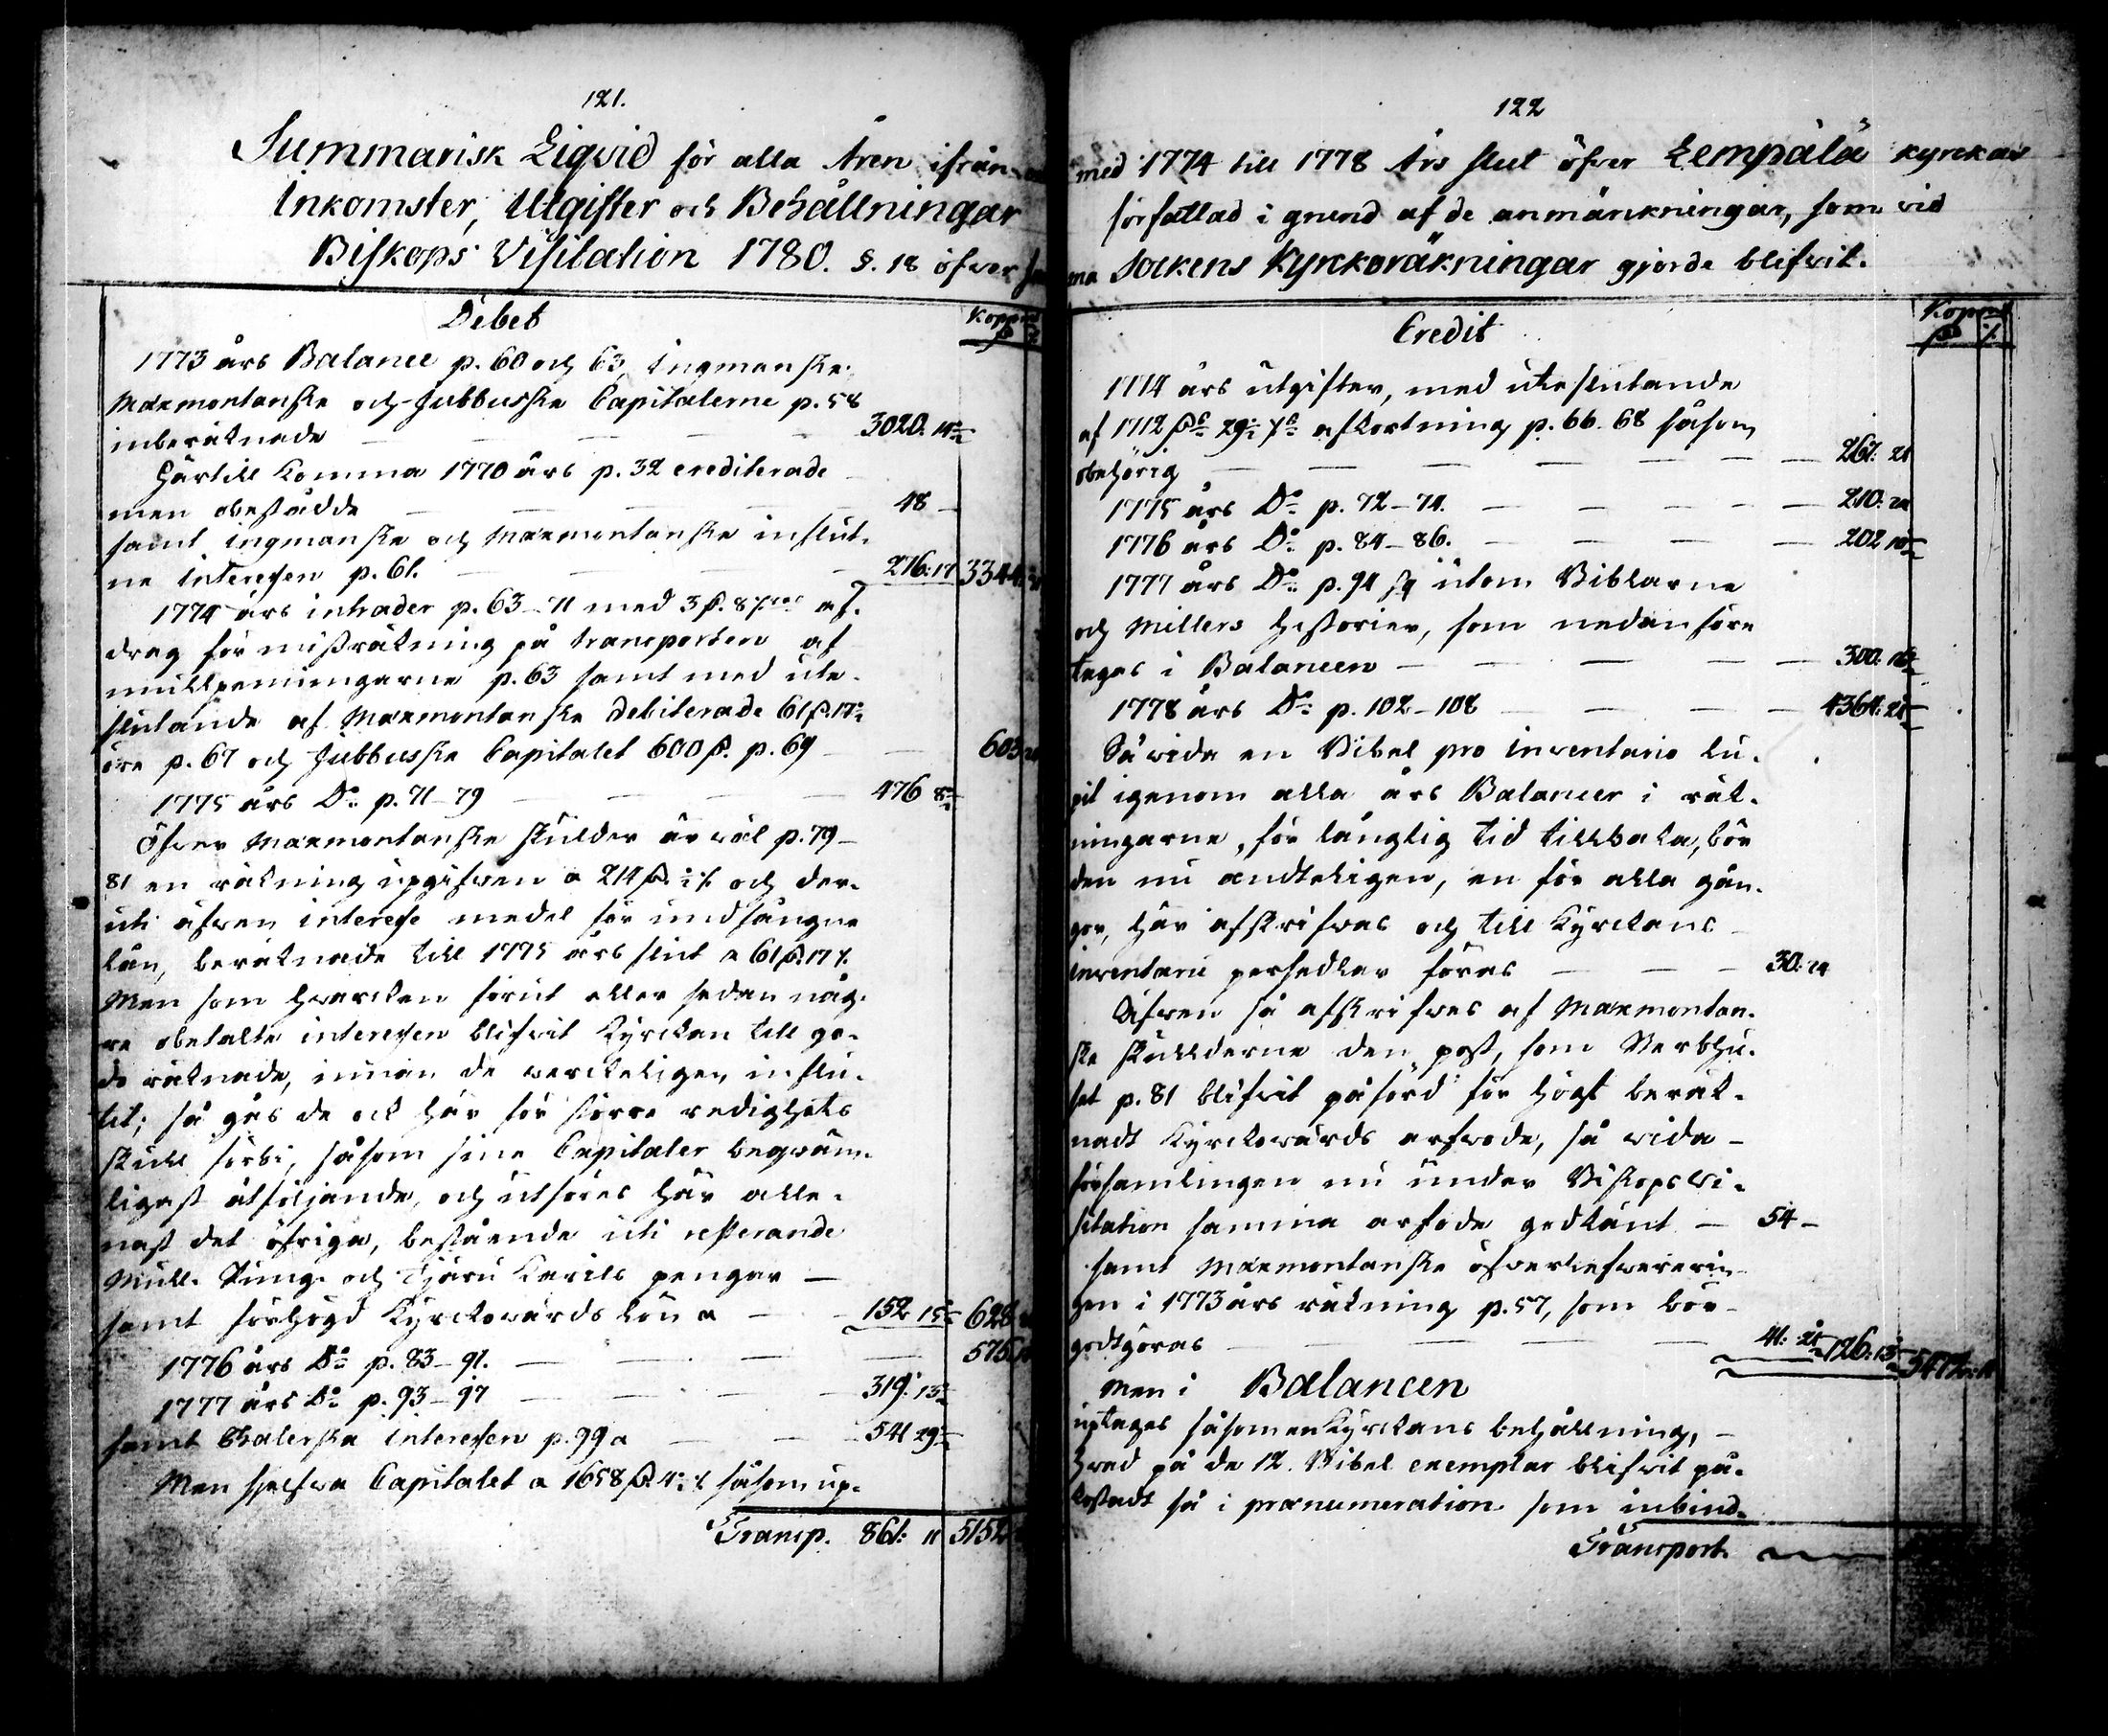 121.
Summarisk Liqvid för alla Åren ifrån
Inkomster, Utgifter och Behållningar
Biskops Visitation 1780. §. 18 öfver
Debet
1773 års Balance p. 60 och 63, Ingmanske
Maxmontanske och Jubbuske Capitalerne p. 58
inberäknade 3020. 14
Härtill komma 1770 års p. 32 crediterade
men obestådde 48
samt Ingmanske och Maxmontanske influt-
ne Interessen p. 61. 276: 17 3344
1774 års inkader p. 63-71 med 3 af-
drag för missräkning på transporten af
mullpenningarne p. 63 samt med ute-
slutande af Maxmontanske debiterade 61 17
öre p. 67 och Jubbuske Capitalet 600 p. 69 603
1775 års Do p. 71-79 476 8
Öfver Maxmontanske skulder är wäl p. 79-
81 en räkning upgifwen a 214 och der-
uti äfwen interesse medel för undfångne
lån, beräknade till 1775 års slut a 61 17
Men som hwarcken förut eller sedan någ-
re obetalte interessen blifwit Kyrckan till go-
do räknade, innan de werckeligen influ-
tit; så gås de ock här för större redighets
skull förbi, såsom sine Capitaler beqwäm-
ligast åtföljande, och utföres här alle-
nast det öfriga, bestående uti resterande
Mull- Ring- och Tjäru Karils pengar
samt förhögd Kyrckowärds lön a 152 15 628
1776 års Do p. 83-91. 575
1777 års Do p. 93-97 319: 13
samt interessen p. 99 a 541 29
Men sjelfwa Capitalet a 1658 såsom up-
Transp. 861: 11 5152
122
med 1774 till 1778 Års slut öfver Lempälä kyrckas
författad i grund af de anmärkningar, som vid
ma Sockens Kyrkoräkningar gjorde blifvit.
Credit
1774 års utgifter, med uteslutande
af 1712 29 afkortning p. 66. 68 såsom
obehörig 267: 21
1775 års Do p. 72-74. 210: 20
1776 års Do p. 84-86. 202 10
1777 års Do p. 94 utom Biblarne
och Millers Historier, som nedanföre
tages i Balancen 300:
1778 års Do p. 102-108 4364: 21
Så wida en Bibel pro inventario lu-
pit igenom alla års Balancer i räk-
ningarne, för långlig tid tillbaka, bör
den nu andteligen, en för alla gån-
gor, här afskrifwas och till Kyrckans
inventarii persedlar föras 30: 24
Äfwen så afskrifwes af Maxmontan-
ske skullderne den post, som Sterbhu-
set p. 81 blifwit påförd för högt beräk-
nadt Kyrckowärds arfwode, så wida
församlingen nu under Biskops Vi-
sitation samma arfode godkänt 54
samt Maxmontanske öfwerlefwererin-
gen i 1773 års räkning p. 57, som bör
godtgöras 41: 21 126: 13 5472: 11
Men i Balancen
uptages såsom en Kyrckans behållning,
hwad på de 12 Bibel exemplar blifwit på-
kostadt så i prænumeration som inbind-
Transport.